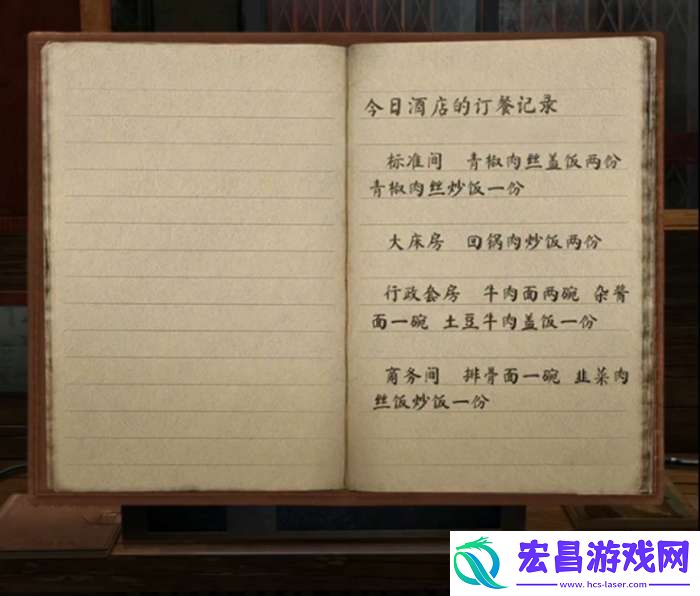 今日酒店的订餐记录
标准间 青椒肉丝盖饭两份
青椒肉丝炒饭一份
大床房 回锅肉炒饭两份
行政套房 牛肉面两碗 杂酱
面一碗 土豆牛肉盖饭一份
商务间 排骨面一碗 韭菜肉
丝饭炒饭一份
宏昌游戏网
www.hcs-laser.com